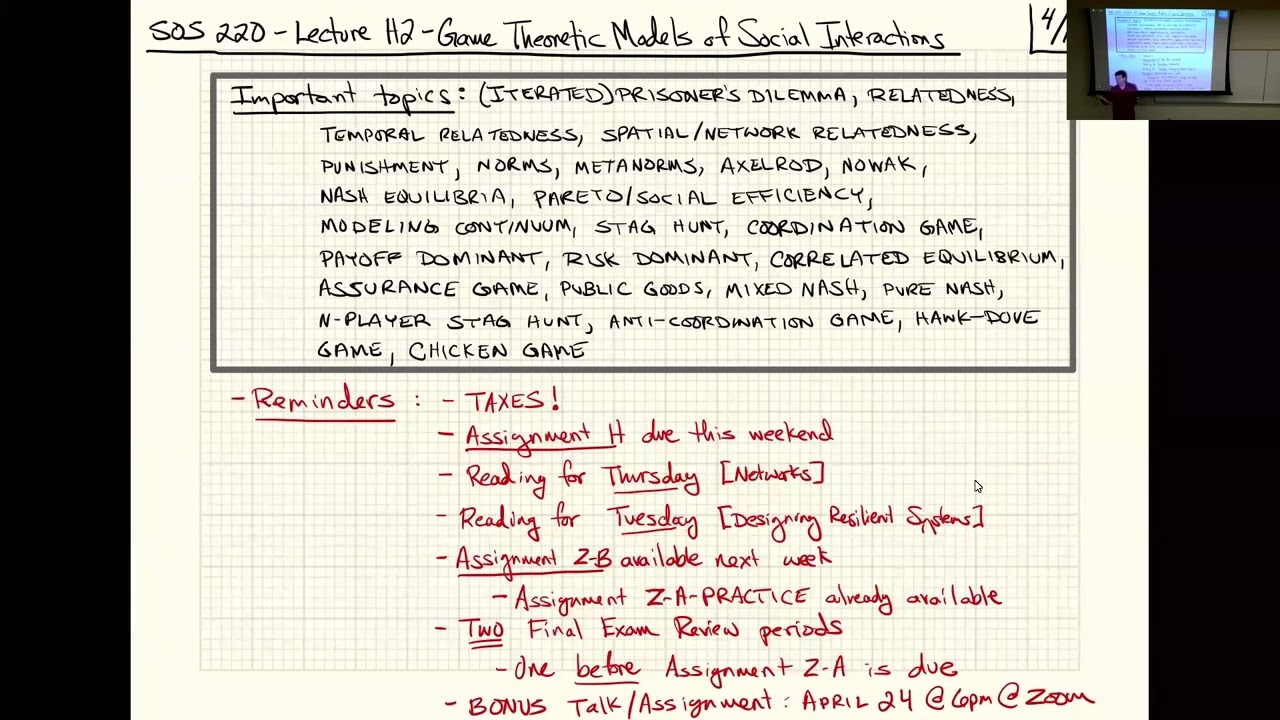 SOS 220 - Lecture H2 - Theoretic Models of Social Interactions 4/
Important topics: (ITERATED) PRISONER'S DILEMMA, RELATEDNESS,
TEMPORAL RELATEDNESS, SPATIAL/NETWORK RELATEDNESS,
PUNISHMENT, NORMS, METANORMS, AXELROD, NOWAK,
NASH EQUILIBRIA, PARETO/SOCIAL EFFICIENCY,
MODELING CONTINUUM, STAG HUNT, COORDINATION GAME,
PAYOFF DOMINANT, RISK DOMINANT, CORRELATED EQUILIBRIUM,
ASSURANCE GAME, PUBLIC GOODS, MIXED NASH, PURE NASH,
N-PLAYER STAG HUNT, ANTI-COORDINATION GAME, HAWK-DOVE
GAME, CHICKEN GAME
- Reminders: - TAXES!
- Assignment H due this weekend
- Reading for Thursday [Networks]
- Reading for Tuesday [Designing Resilient Systems]
- Assignment Z-B available next week
- Assignment Z-A-PRACTICE already available
- Two Final Exam Review periods
- One before Assignment Z-A is due
- BONUS Talk/Assignment: APRIL 24 @ 6pm @ Zoom